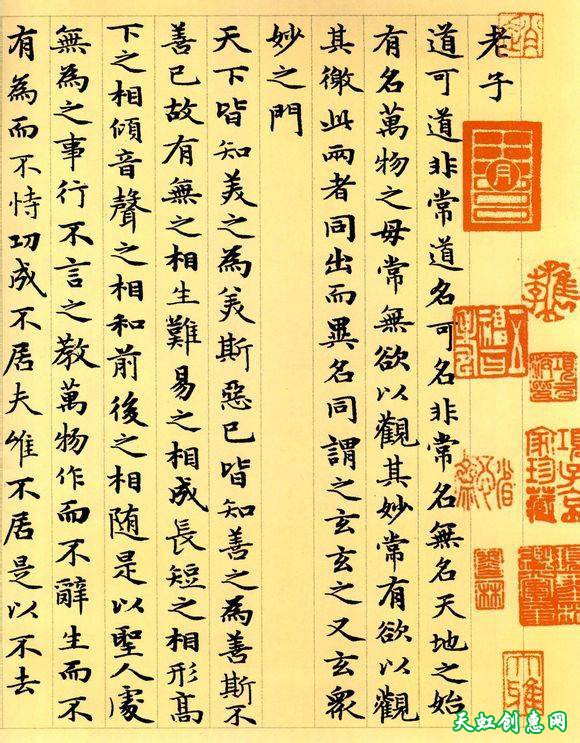 老子
道可道非常道名可名非常名無名天地之始
有名萬物之母常無欲以觀其妙常有欲以觀
其徼此兩者同出而異名同謂之玄玄之又玄眾
妙之門
天下皆知美之為美斯惡已皆知善之為善斯不
善已故有無之相生難易之相成長短之相形高
下之相傾音聲之相和前後之相随是以聖人處
無為之事行不言之教萬物作而不辭生而不
有為而不恃功成不居夫惟不居是以不去
項子京
家珍藏
墨林
天虹创惠网